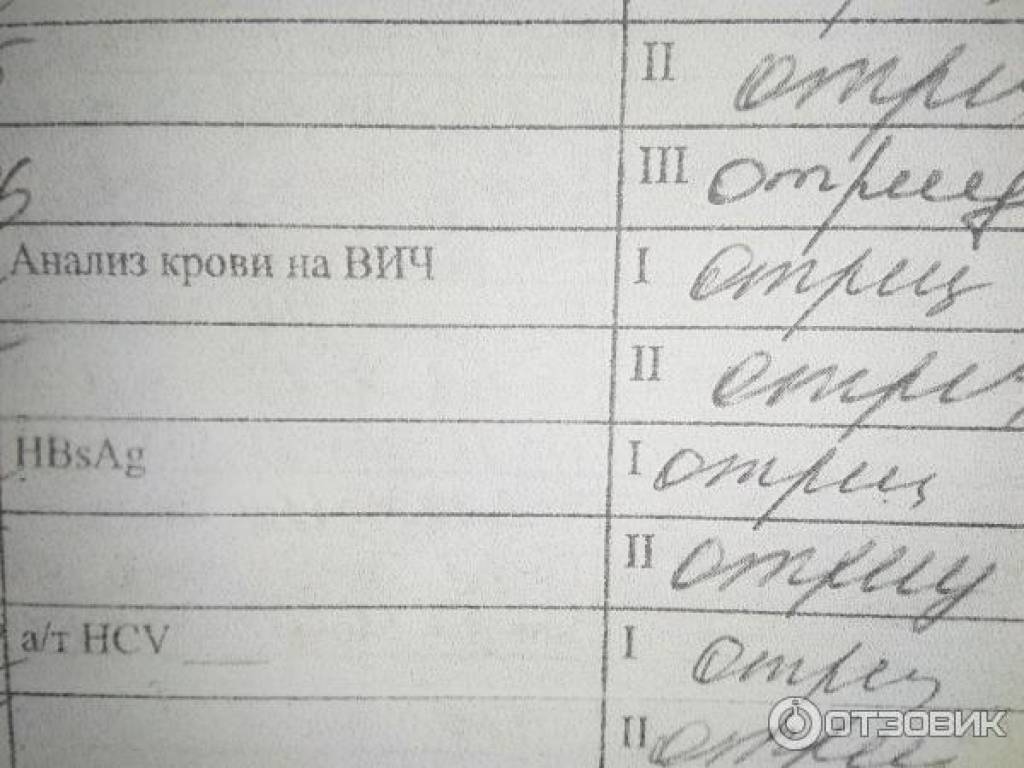 II отриц
III отриц
Анализ крови на ВИЧ I отриц
II отриц
HBsAg I отриц
II отриц
а/т HCV I отриц
II отриц
ОТЗОВИК